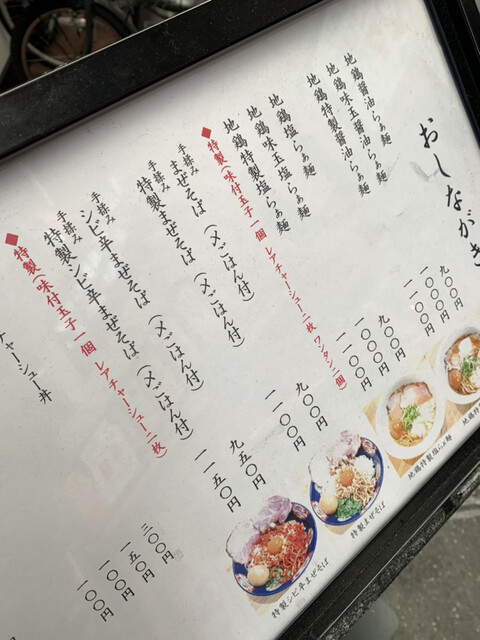 おしながき
地鶏醤油らぁ麺 九〇〇円
地鶏味玉醤油らぁ麺 一〇〇〇円
地鶏特製醤油らぁ麺 一一〇〇円
地鶏塩らぁ麺 九〇〇円
地鶏味玉塩らぁ麺 一〇〇〇円
地鶏特製塩らぁ麺 一一〇〇円
◆特製(味付玉子一個 レアチャーシュー二枚 ワンタン二個)
手揉みまぜそば(〆ごはん付) 九〇〇円
手揉み特製まぜそば(〆ごはん付) 一一〇〇円
手揉みシビ辛まぜそば(〆ごはん付) 九五〇円
手揉み特製シビ辛まぜそば(〆ごはん付) 一一五〇円
◆特製(味付玉子一個 レアチャーシュー二枚)
チャーシュー丼
三〇〇円
一五〇円
一〇〇円
一〇〇円
地鶏特
地鶏特製塩らぁ麺
特製まぜそば
特製シビ辛まぜそば